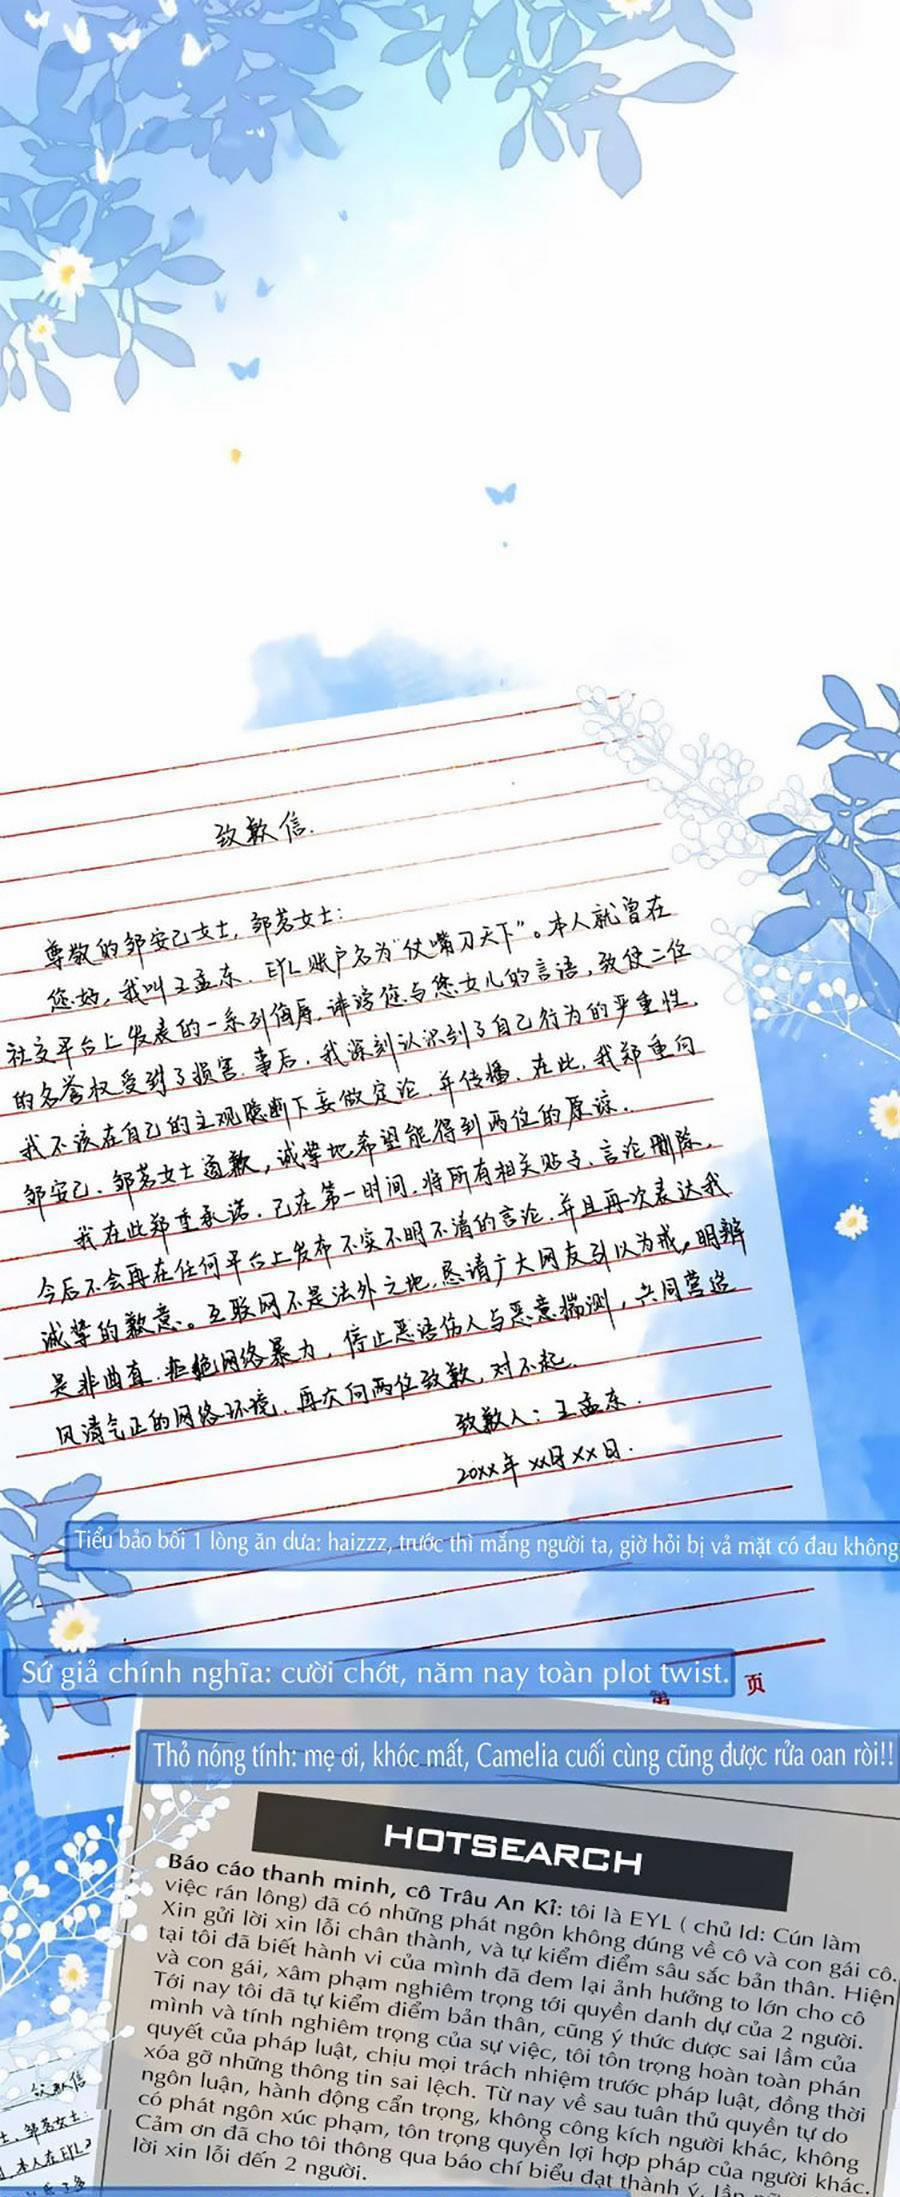 致歉信.
尊敬的邹安己女士, 邹茗女士:
您好, 我叫王孟东. EYL账户名为“仗嘴刃天下”。本人就曾在
社交平台上发表的一系列侮辱, 诽谤您与您女儿的言语, 致使二位
的名誉权受到了损害. 事后, 我深刻认识到了自己行为的严重性.
我不该在自己的主观臆断下妄做定论, 并传播. 在此, 我郑重向
邹安己. 邹茗女士道歉, 诚挚地希望能得到两位的原谅.
我在此郑重承诺. 已在第一时间, 将所有相关贴子、言论删除.
今后不会再在任何平台上发布不实不明不清的言论. 并且再次表达我
诚挚的歉意。互联网不是法外之地, 恳请广大网友引以为戒, 明辨
是非曲直. 拒绝网络暴力, 停止恶语伤人与恶意揣测, 共同营造
风清气正的网络环境. 再次向两位致歉, 对不起.
致歉人: 王孟东.
20XX年 XX月XX日.
Tiểu bảo bối 1 lòng ăn dưa: haizzz, trước thì mắng người ta, giờ hỏi bị vả mặt có đau không
Sứ giả chính nghĩa: cười chớt, năm nay toàn plot twist.
第 页
Thỏ nóng tính: mẹ ơi, khóc mất, Camelia cuối cùng cũng được rửa oan ròi!!
HOTSEARCH
Báo cáo thanh minh, cô Trâu An Kỉ: tôi là EYL ( chủ Id: Cún làm
việc rán lông) đã có những phát ngôn không đúng về cô và con gái cô.
Xin gửi lời xin lỗi chân thành, và tự kiểm điểm sâu sắc bản thân. Hiện
tại tôi đã biết hành vi của mình đã đem lại ảnh hưởng to lớn cho cô
và con gái, xâm phạm nghiêm trọng tới quyền danh dự của 2 người.
Tới nay tôi đã tự kiểm điểm bản thân, cũng ý thức được sai lầm của
mình và tính nghiêm trọng của sự việc, tôi tôn trọng hoàn toàn phán
quyết của pháp luật, chịu mọi trách nhiệm trước pháp luật, đồng thời
xóa gỡ những thông tin sai lệch. Từ nay về sau tuân thủ quyền tự do
ngôn luận, hành động cẩn trọng, không công kích người khác, không
có phát ngôn xúc phạm, tôn trọng quyền lợi hợp pháp của người khác.
Cảm ơn đã cho tôi thông qua báo chí biểu đạt thành ý, lần
lời xin lỗi đến 2 người.
致歉信
邹茗女士:
本人在EYL